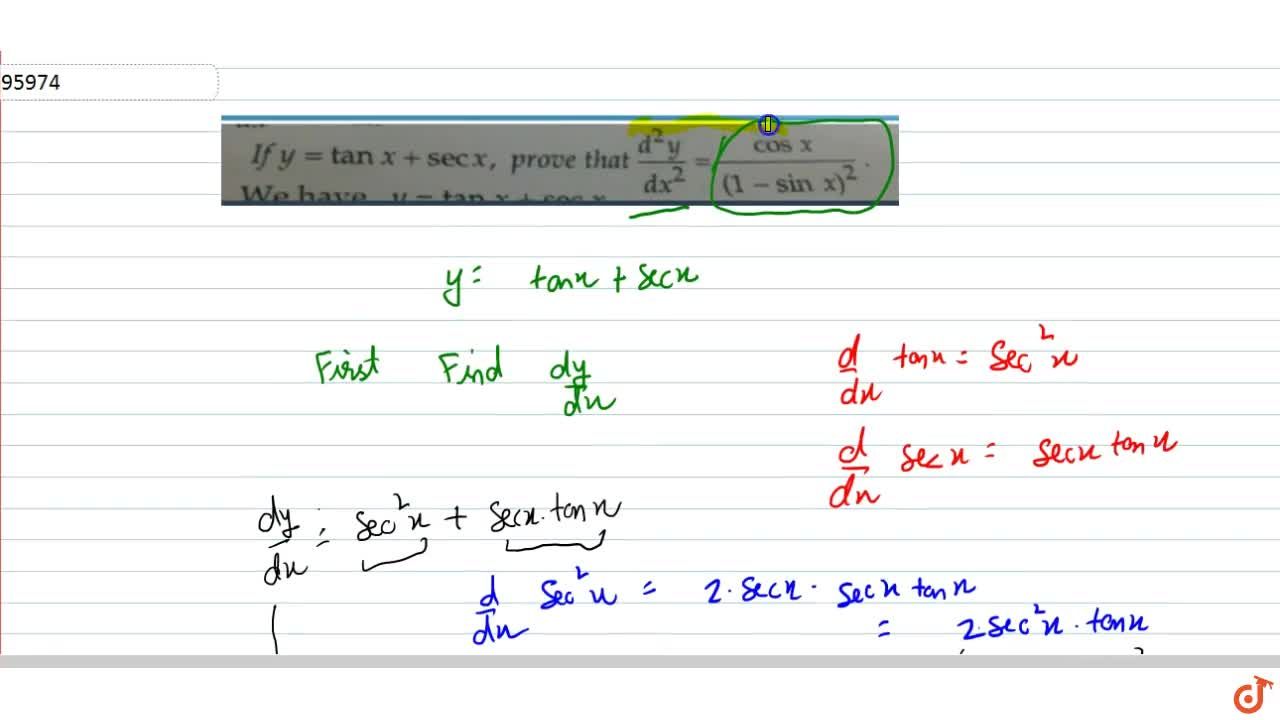 95974
If y = tan x + sec x, prove that d²y/dx² = cos x/(1 − sin x)².
We have
y = tanx + secx
First Find dy/dx
d/dx tanx = Sec²x
d/dx secx = secx tanx
dy/dx = sec²x + secx.tanx
d/dx Sec²x = 2.secx. secx tanx
= 2.sec²x.tanx